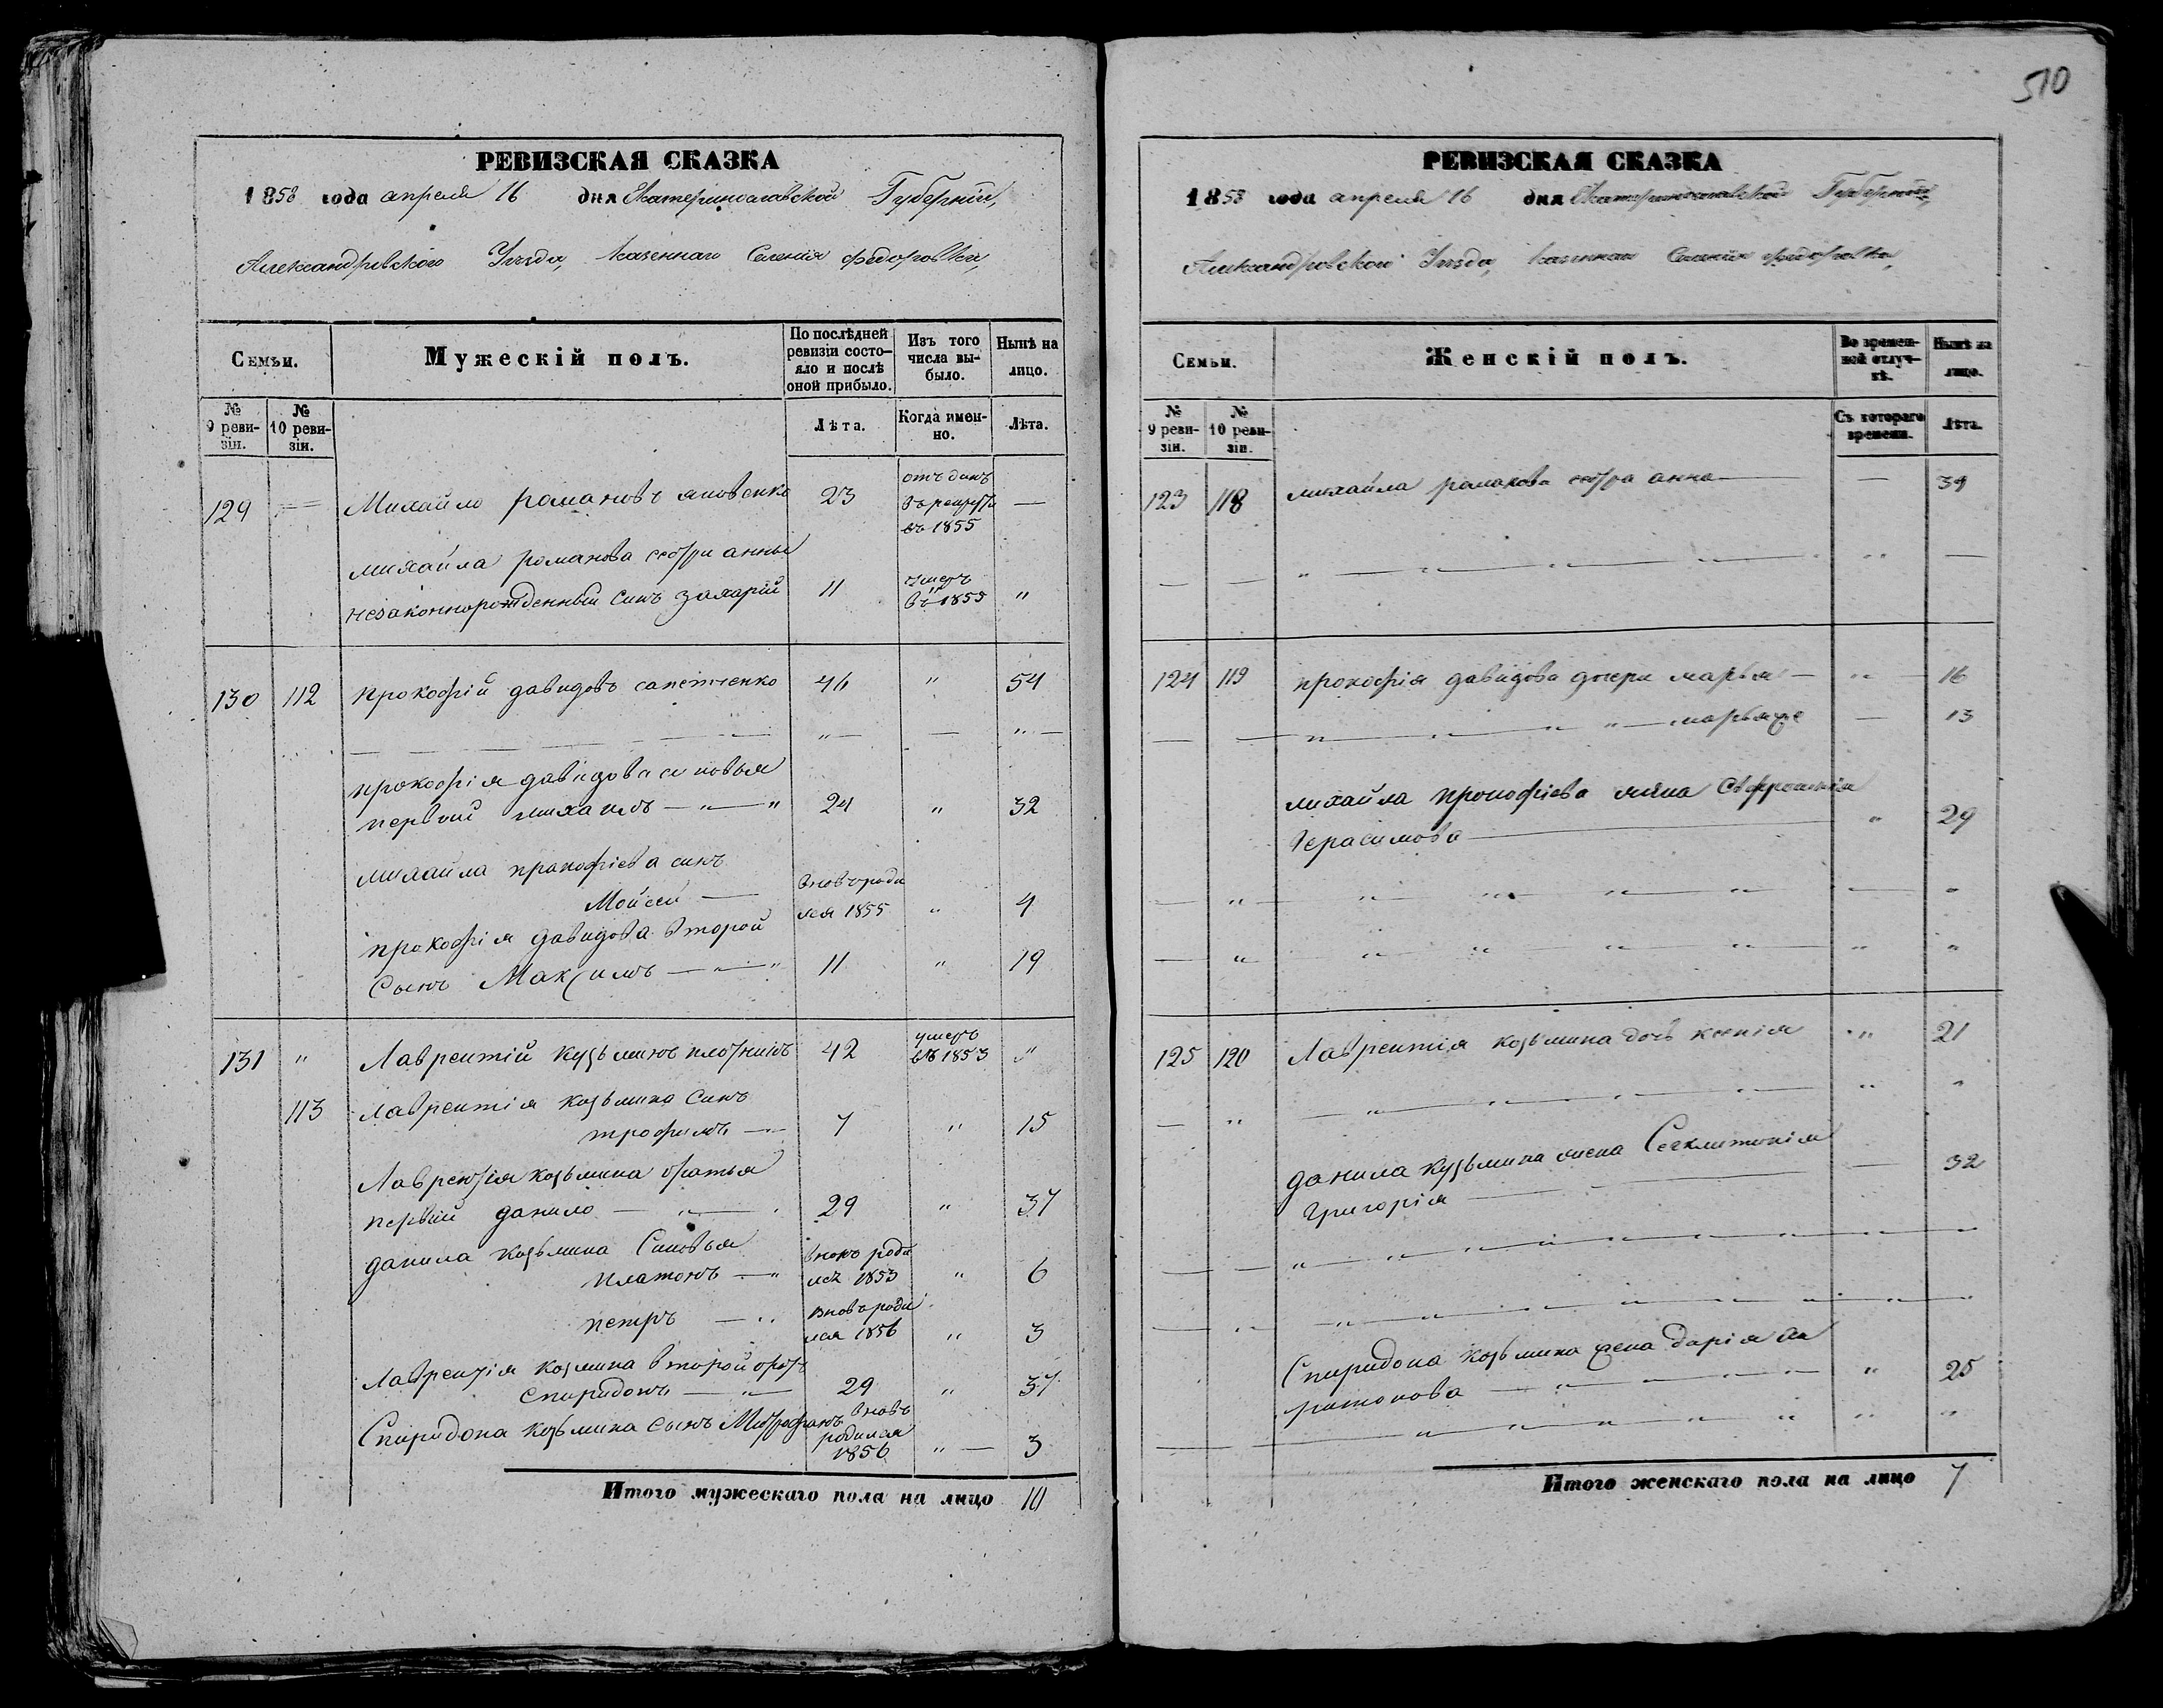 510
РЕВИЗСКАЯ СКАЗКА
1858 года апреля 16 дня Екатеринославской Губерніи,
Александровского Уезда, казеннаго Селенія федоровки,
Семьи.
Мужескій полъ.
По послѣдней ревизіи состояло и послѣ оной прибыло.
Изъ того числа выбыло.
Нынѣ на лицо.
№ 9 ревизіи.
№ 10 ревизіи.
Лѣта.
Когда именно.
Лѣта.
129 Михайло романовъ яковенко 23 отъ данъ въ рекруты въ 1855 —
михайла романова сестры анны
незаконнорожденный синъ захарій 11 умеръ въ 1855 "
130 112 прокофій давидовъ сапетченко 46 " 54
прокофія давидова сыновья
первый михаилъ 24 " 32
михайла прокофіева синъ
Мойсей вновъ родился 1855 " 4
прокофія давидова второй
Сынъ Максимъ 11 " 19
131 " Лаврентій кузьминъ плотникъ 42 умеръ въ 1853 "
113 Лаврентія козьмина Синъ
трофимъ 7 " 15
Лаврентія козьмина братья
первый данило 29 " 37
данила козьмина Сыновья
платонъ вновъ родился 1853 " 6
петръ вновъ родился 1856 " 3
Лаврентія козмина второй братъ
Спиридонъ 29 " 37
Спиридона козьмина сынъ Митрофанъ вновъ родился 1856 " 3
Итого мужескаго пола на лицо 10
РЕВИЗСКАЯ СКАЗКА
1858 года апреля 16 дня Екатеринославской Губерніи,
Александровской Уезда, казеннаго Селенія федоровки,
Семьи.
Женскій полъ.
Во временной отлучкѣ.
Нынѣ на лицо.
№ 9 ревизіи.
№ 10 ревизіи.
Съ котораго времени.
Лѣта.
123 118 михайла романова сестра анна — 39
124 119 прокофія давидова дочери марья " 16
— 13
михайла прокофіева жена
Герасимова " 29
125 120 Лаврентія козьмина дочь ксенія " 21
данила кузьмина жена
Григорія — 32
Спиридона козьмина жена дарія
" 25
Итого женскаго пола на лицо 7